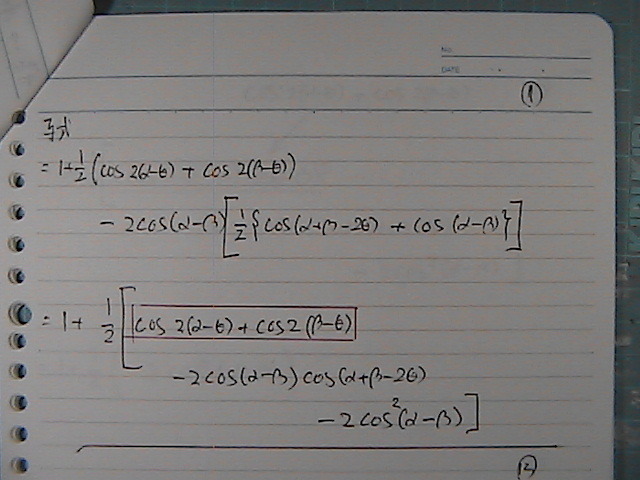 NO.
DATE
①
与式
= 1+½(cos 2(α-θ) + cos 2(β-θ))
- 2cos(α-β)[½{cos(α+β-2θ) + cos(α-β)}]
= 1+ ½[cos 2(α-θ) + cos2(β-θ)
-2cos(α-β)cos(α+β-2θ)
-2cos²(α-β)]
②